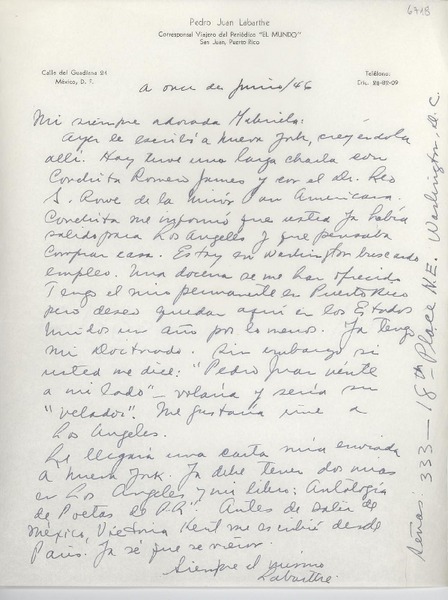 671B
Pedro Juan Labarthe
Corresponsal Viajero del Periódico "EL MUNDO"
San Juan, Puerto Rico
Calle del Guadiana 24
México, D. F.
Teléfono:
Eric. 28-92-09
a once de junio/46
Mi siempre adorada Gabriela:
Ayer le escribí a Nueva York, creyéndola
allí. Hoy tuve una larga charla con
Conchita Romero James y con el Dr. Leo
S. Rowe de la Unión Pan Americana.
Conchita me informó que usted ya había
salido para Los Angeles y que pensaba
comprar casa. Estoy en Washington buscando
empleo. Una docena se me han ofrecido
Tengo el mío permanente en Puerto Rico
pero deseo quedar aquí en los Estados
Unidos un año por lo menos. Ya tengo
mi Doctorado. Sin embargo si
usted me dice: "Pedro Juan vente
a mi lado" – volaría y sería su
"velador". Me gustaría irme a
Los Angeles.
Le llegará una carta mía enviada
a Nueva York. Ya debe tener dos mías
en Los Angeles y mi libro: Antología
de Poetas de P.R". Antes de salir de
México, Victoria Kent me escribió desde
París. Ya sé que se vieron.
Siempre el mismo
Labarthe.
Señas: 333 — 18th Place N.E. Washington D.C.